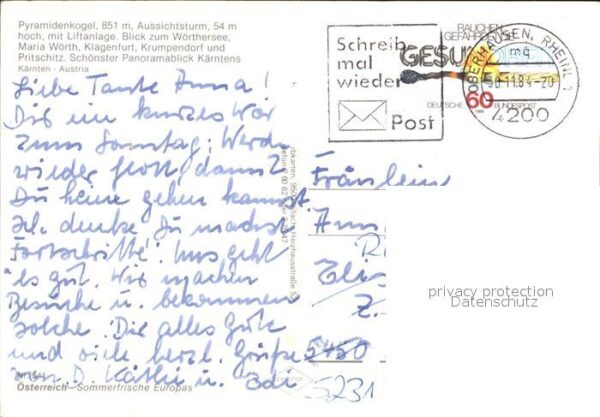 Pyramidenkogel, 851 m, Aussichtsturm, 54 m
hoch, mit Liftanlage. Blick zum Wörthersee,
Maria Wörth, Klagenfurt, Krumpendorf und
Pritschitz. Schönster Panoramablick Kärntens
Kärnten - Austria
Liebe Tante Anna!
Dir ein kurzes
zum Sonntag: Werde
wieder
Du keine gehen kannst.
Ich denke Du machst
Fortschritte! Uns geht
es gut. Wir machen
Besuche u. bekommen
solche. Dir alles Gute
und viele herzl. Grüße
von D. Käthi u.
Österreich - Sommerfrische Europas
Schreib
mal
wieder
Post
RAUCHEN
GEFÄHRDET
GESU
60
DEUTSCHE BUNDESPOST
OBERHAUSEN, RHEINL 1
mq
.11.84-20
4200
Fräulein
Ann
5450
5231
privacy protection
Datenschutz